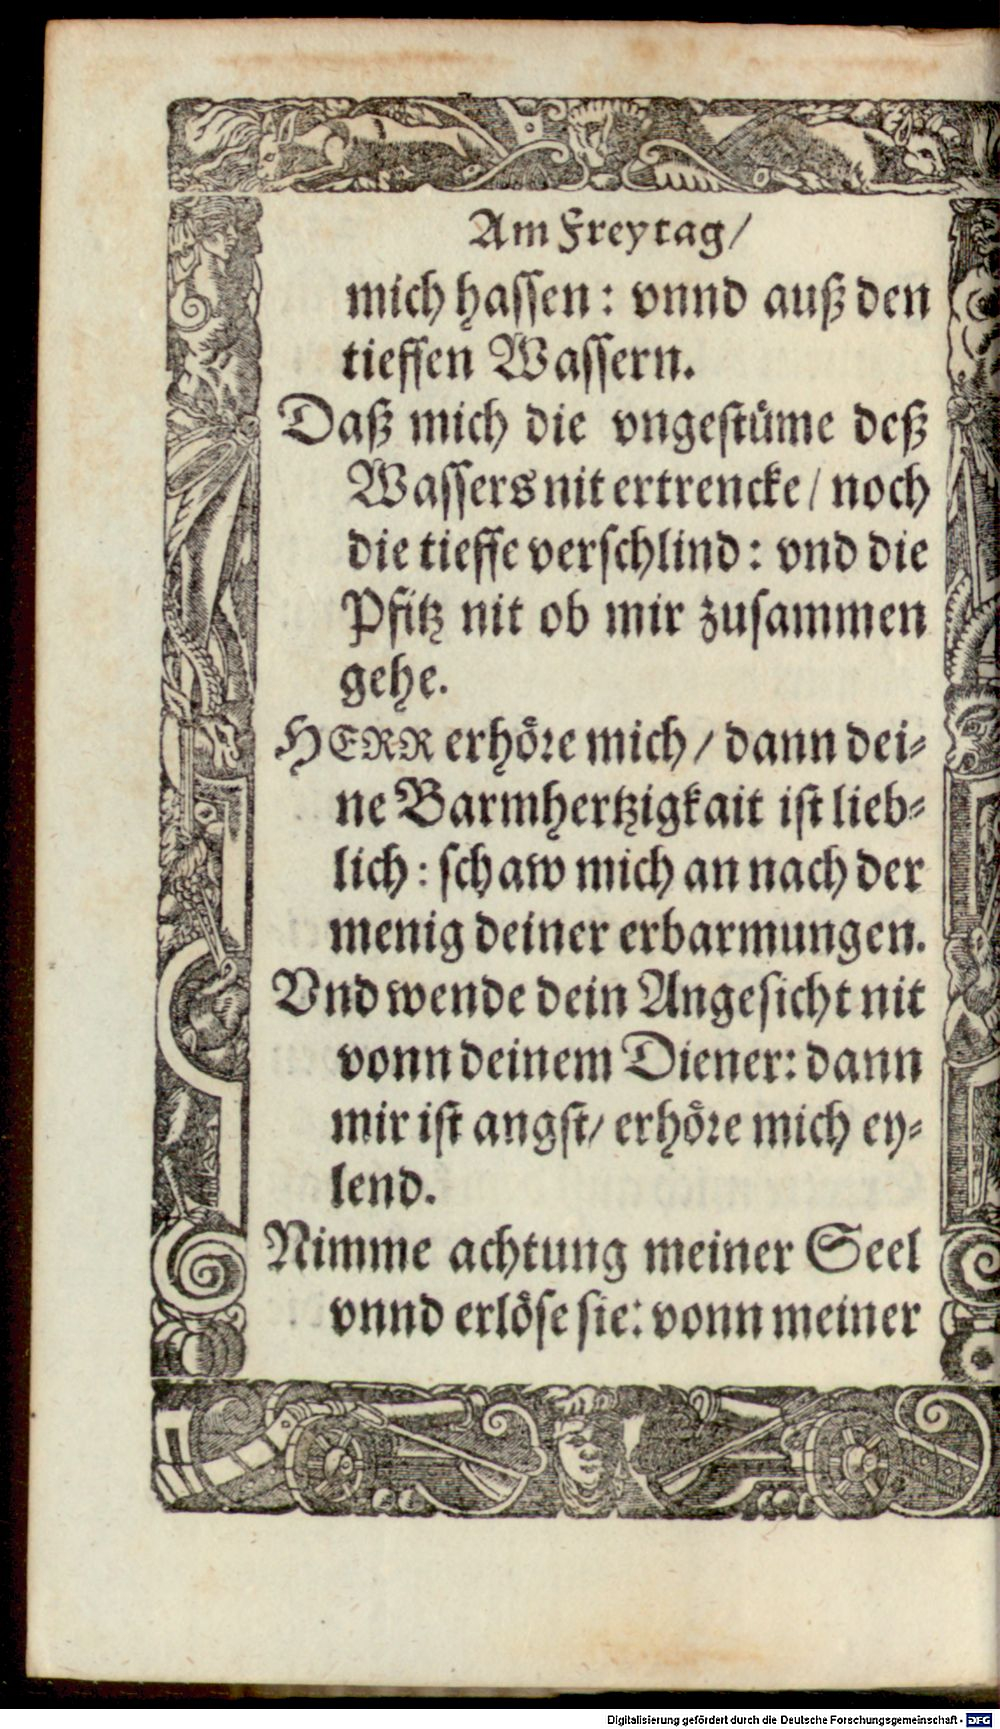 Am Freytag/
mich hassen: vnnd auß den
tieffen Wassern.
Daß mich die vngestüme deß
Wassers nit ertrencke/ noch
die tieffe verschlind: vnd die
Pfitz nit ob mir zusammen
gehe.
HERR erhöre mich/ dann dei-
ne Barmhertzigkait ist lieb-
lich: schaw mich an nach der
menig deiner erbarmungen.
Vnd wende dein Angesicht nit
vonn deinem Diener: dann
mir ist angst/ erhöre mich ey-
lend.
Nimme achtung meiner Seel
vnnd erlöse sie: vonn meiner
Digitalisierung gefördert durch die Deutsche Forschungsgemeinschaft - DFG